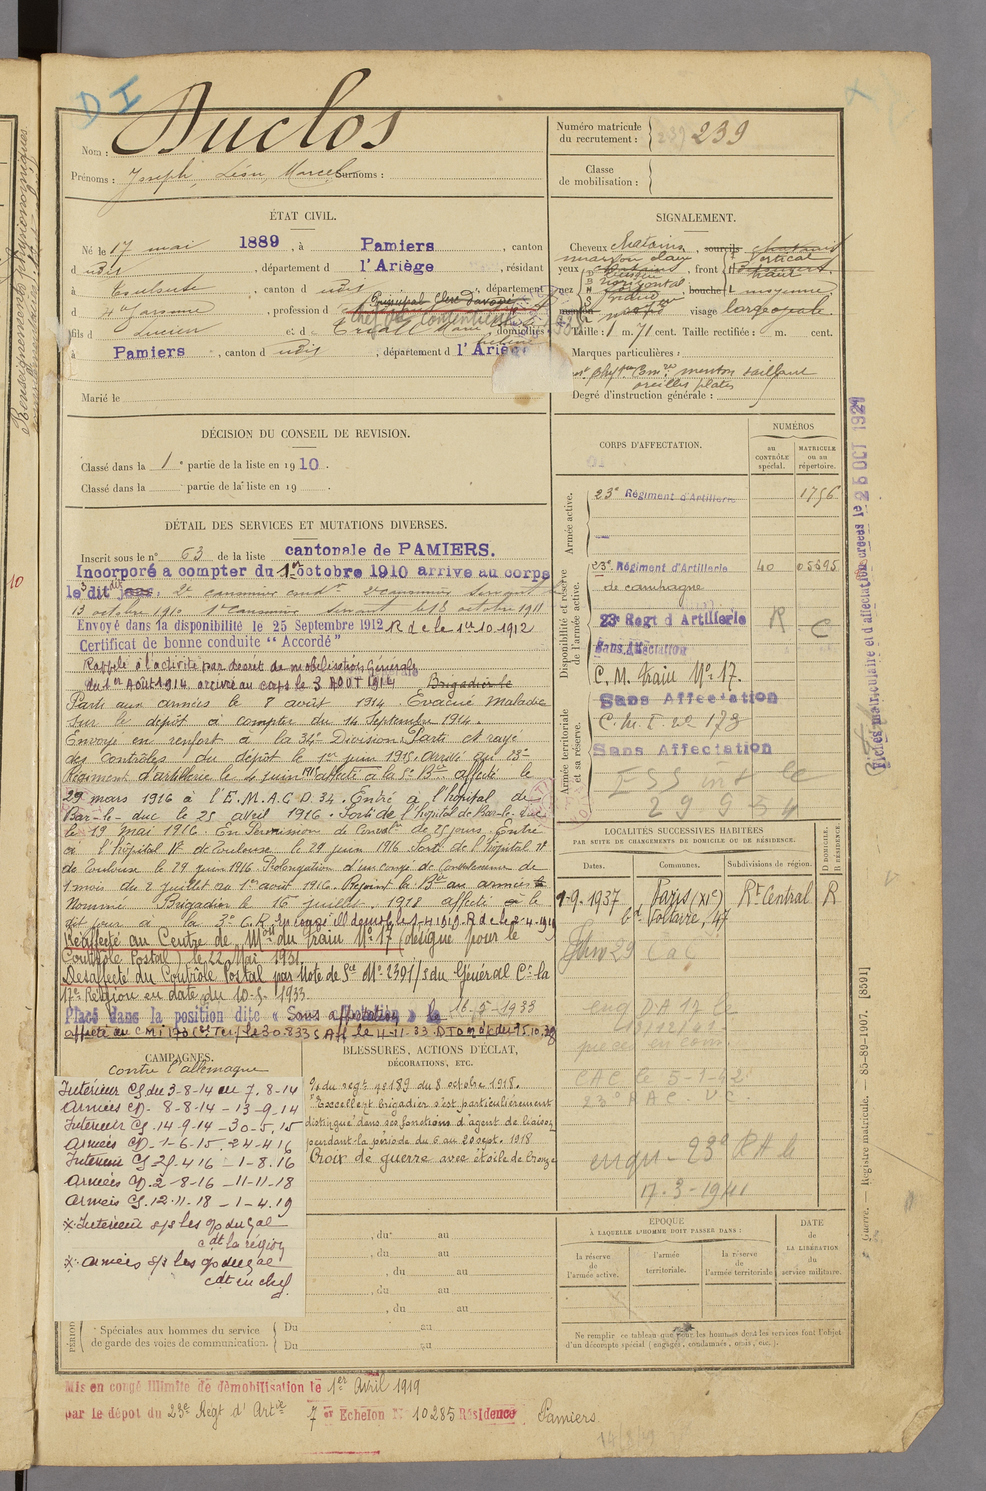 D I
Nom : Duclos
Prénoms : Joseph, Léon, Marcel Surnoms :
Numéro matricule du recrutement : 239
Classe de mobilisation :
ÉTAT CIVIL.
Né le 17 mai 1889, à Pamiers, canton
d udit, département d l'Ariège, résidant
à Toulouse, canton d udit, département
d Hte Garonne, profession d Principal Clerc d'avoué
fils d Lucien et d domiciliés
à Pamiers, canton d udit, département d l'Ariège
Marié le
SIGNALEMENT.
Cheveux chatain, sourcils
marron clair
yeux, front vertical
nez horizontal, bouche moyenne
visage large ovale.
Taille : 1 m. 71 cent. Taille rectifiée : m. cent.
Marques particulières :
menton saillant
oreilles plates
Degré d'instruction générale :
DÉCISION DU CONSEIL DE REVISION.
Classé dans la 1e partie de la liste en 1910.
Classé dans la partie de la liste en 19 .
CORPS D'AFFECTATION.
NUMÉROS
au CONTRÔLE spécial.
MATRICULE ou au répertoire.
Armée active.
23e Régiment d'Artillerie 1756
Disponibilité et réserve de l'armée active.
23e Régiment d'Artillerie 40 05695
de campagne
23e Regt d'Artillerie R C
Sans Affectation
C. M. Train No 17.
Armée territoriale et sa réserve.
Sans Affectation
C. M. I. no 173
Sans Affectation
29 9 34
DÉTAIL DES SERVICES ET MUTATIONS DIVERSES.
Inscrit sous le n° 63 de la liste cantonale de PAMIERS.
Incorporé a compter du 1er octobre 1910 arrivé au corps
le dit jour. 2e canonnier condr 2e canonnier servant le
13 octobre 1910 1er Canonnier servant le 18 octobre 1911
Envoyé dans la disponibilité le 25 Septembre 1912 R de le 1er 10.1912
Certificat de bonne conduite "Accordé"
Rappelé à l'activité par décret de mobilisation Générale
du 1er Août 1914 arrivé au corps le 3 AOUT 1914 Brigadier le
Parti aux armées le 8 août 1914. Evacué Malade
sur le dépôt à compter du 14 Septembre 1914.
Envoyé en renfort à la 34e Division Parti et rayé
des contrôles du dépôt le 1er juin 1915. Arrivé au 23e
Régiment d'artillerie le 4 juin 1915 affecté à la 5e Bie affecté le
29 mars 1916 à l'E.M.A.C.D. 34. Entré à l'hôpital de
Bar-le-duc le 25 avril 1916. Sorti de l'hôpital de Bar-le-Duc
le 19 mai 1916. En Permission de Convalce de 25 jours. Entré
à l'hôpital Vt de Toulouse le 29 juin 1916 Sorti de l'hôpital Vt
de Toulouse le 29 juin 1916 Prolongation d'un congé de Convalescence de
1 mois du 2 juillet au 1er août 1916. Rejoint la Bie aux armées le
Nommé Brigadier le 16 juillet 1918 affecté à le
dit jour à la 3e C.R. En congé ill démob le 1-4-1919. R de le 2-4-1919
Réaffecté au Centre de Mon du train No 17 (désigné pour le
Contrôle Postal) le 22 Mai 1931.
Désaffecté du Contrôle Postal par Note de Sce No 2391/s du Général Ct la
17e Région en date du 10-5-1933.
Placé dans la position dite « Sans affectation » le 16-5-1933
CAMPAGNES.
contre l'allemagne
Intérieur CS du 3-8-14 au 7.8-14
Armées CD- 8-8-14 – 13-9-14
Intérieur CS 14-9-14 – 30-5.15
Armées CD- 1-6-15. 24-4 16
Intérieur CS 25-4 16 – 1-8.16
Armées CD. 2-8-16 – 11-11-18
Armées CS. 12.11-18 – 1-4.19
x. Intérieur s/s les op du Gal
cdt la région
x. Armées s/s les op du gal
cdt en chef
BLESSURES, ACTIONS D'ÉCLAT,
DÉCORATIONS, ETC.
O/ du regt no 189 du 8 octobre 1918.
"Excellent brigadier s'est particulièrement
distingué dans ses fonctions d'agent de liaison
pendant la période du 6 au 20 sept. 1918
Croix de guerre avec étoile de bronze
, du au
, du au
, du au
, du au
, du au
Spéciales aux hommes du service de garde des voies de communication.
Du au
Du au
LOCALITÉS SUCCESSIVES HABITÉES
PAR SUITE DE CHANGEMENTS DE DOMICILE OU DE RÉSIDENCE.
Dates. Communes. Subdivisions de région. D. DOMICILE. R. RÉSIDENCE.
1-9.1937 Paris (XIe) Rt Central R
bd Voltaire, 47
CAC le 5-1-42
23e RAC. UC
23e RA le
17-3-1941
ÉPOQUE
À LAQUELLE L'HOMME DOIT PASSER DANS :
la réserve de l'armée active.
l'armée territoriale.
la réserve de l'armée territoriale
DATE DE LA LIBÉRATION du service militaire.
Ne remplir ce tableau que pour les hommes dont les services font l'objet
d'un décompte spécial (engagés, condamnés, omis, etc.).
Mis en congé illimité de démobilisation le 1er Avril 1919
par le dépot du 23e Regt d'Artie 7e Echelon N° 10285 Résidence Pamiers
Guerre. — Registre matricule. — 85-89-1907. [8591]
Fiches matriculaire et d'affectation créées le 25 OCT 1927